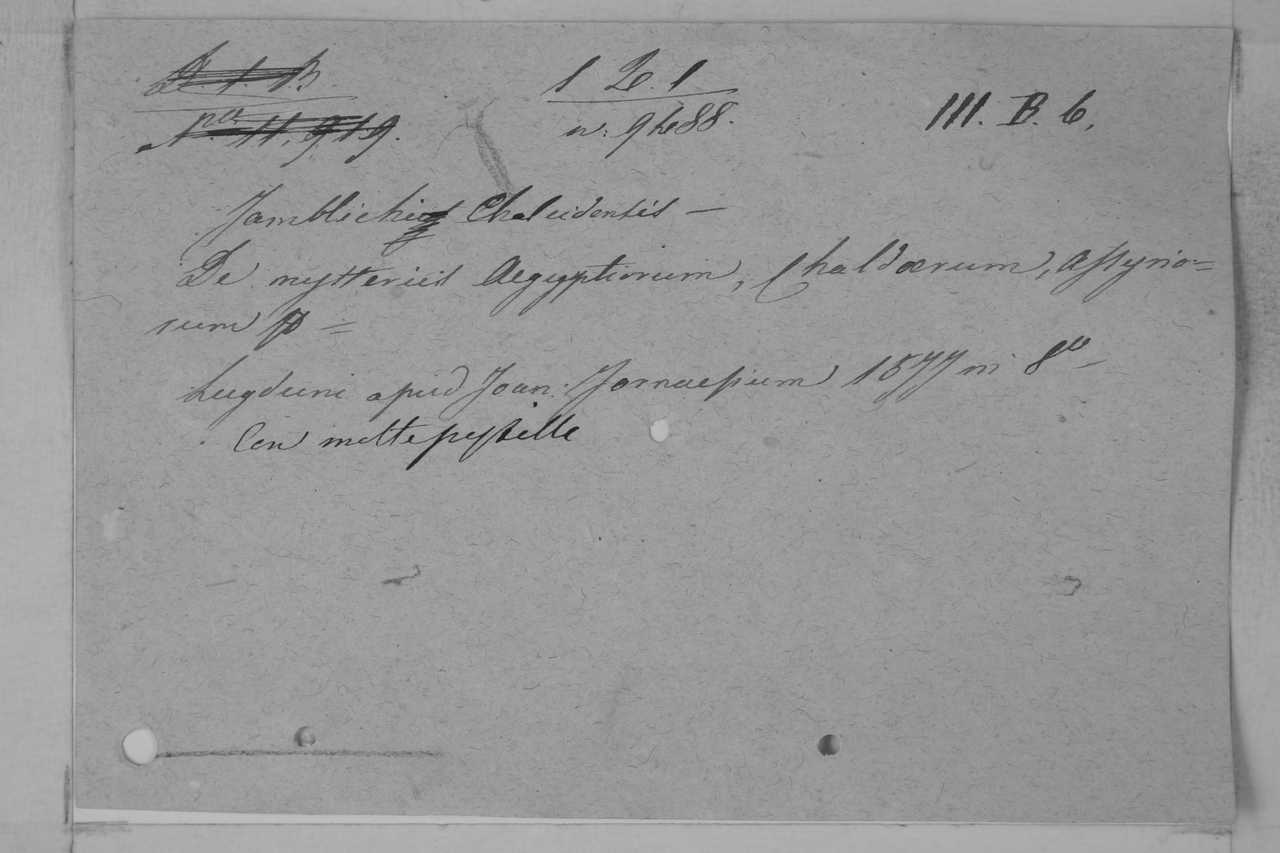 1 L. 1
n: 9488.
III. B. 6.
Jamblichi Chalcidensis —
De mysteriis Aegyptiorum, Chaldærum, Assyrio=
rum =
Lugduni apud Joan: Tornaesium 1577 in 8º —
Con molte postille